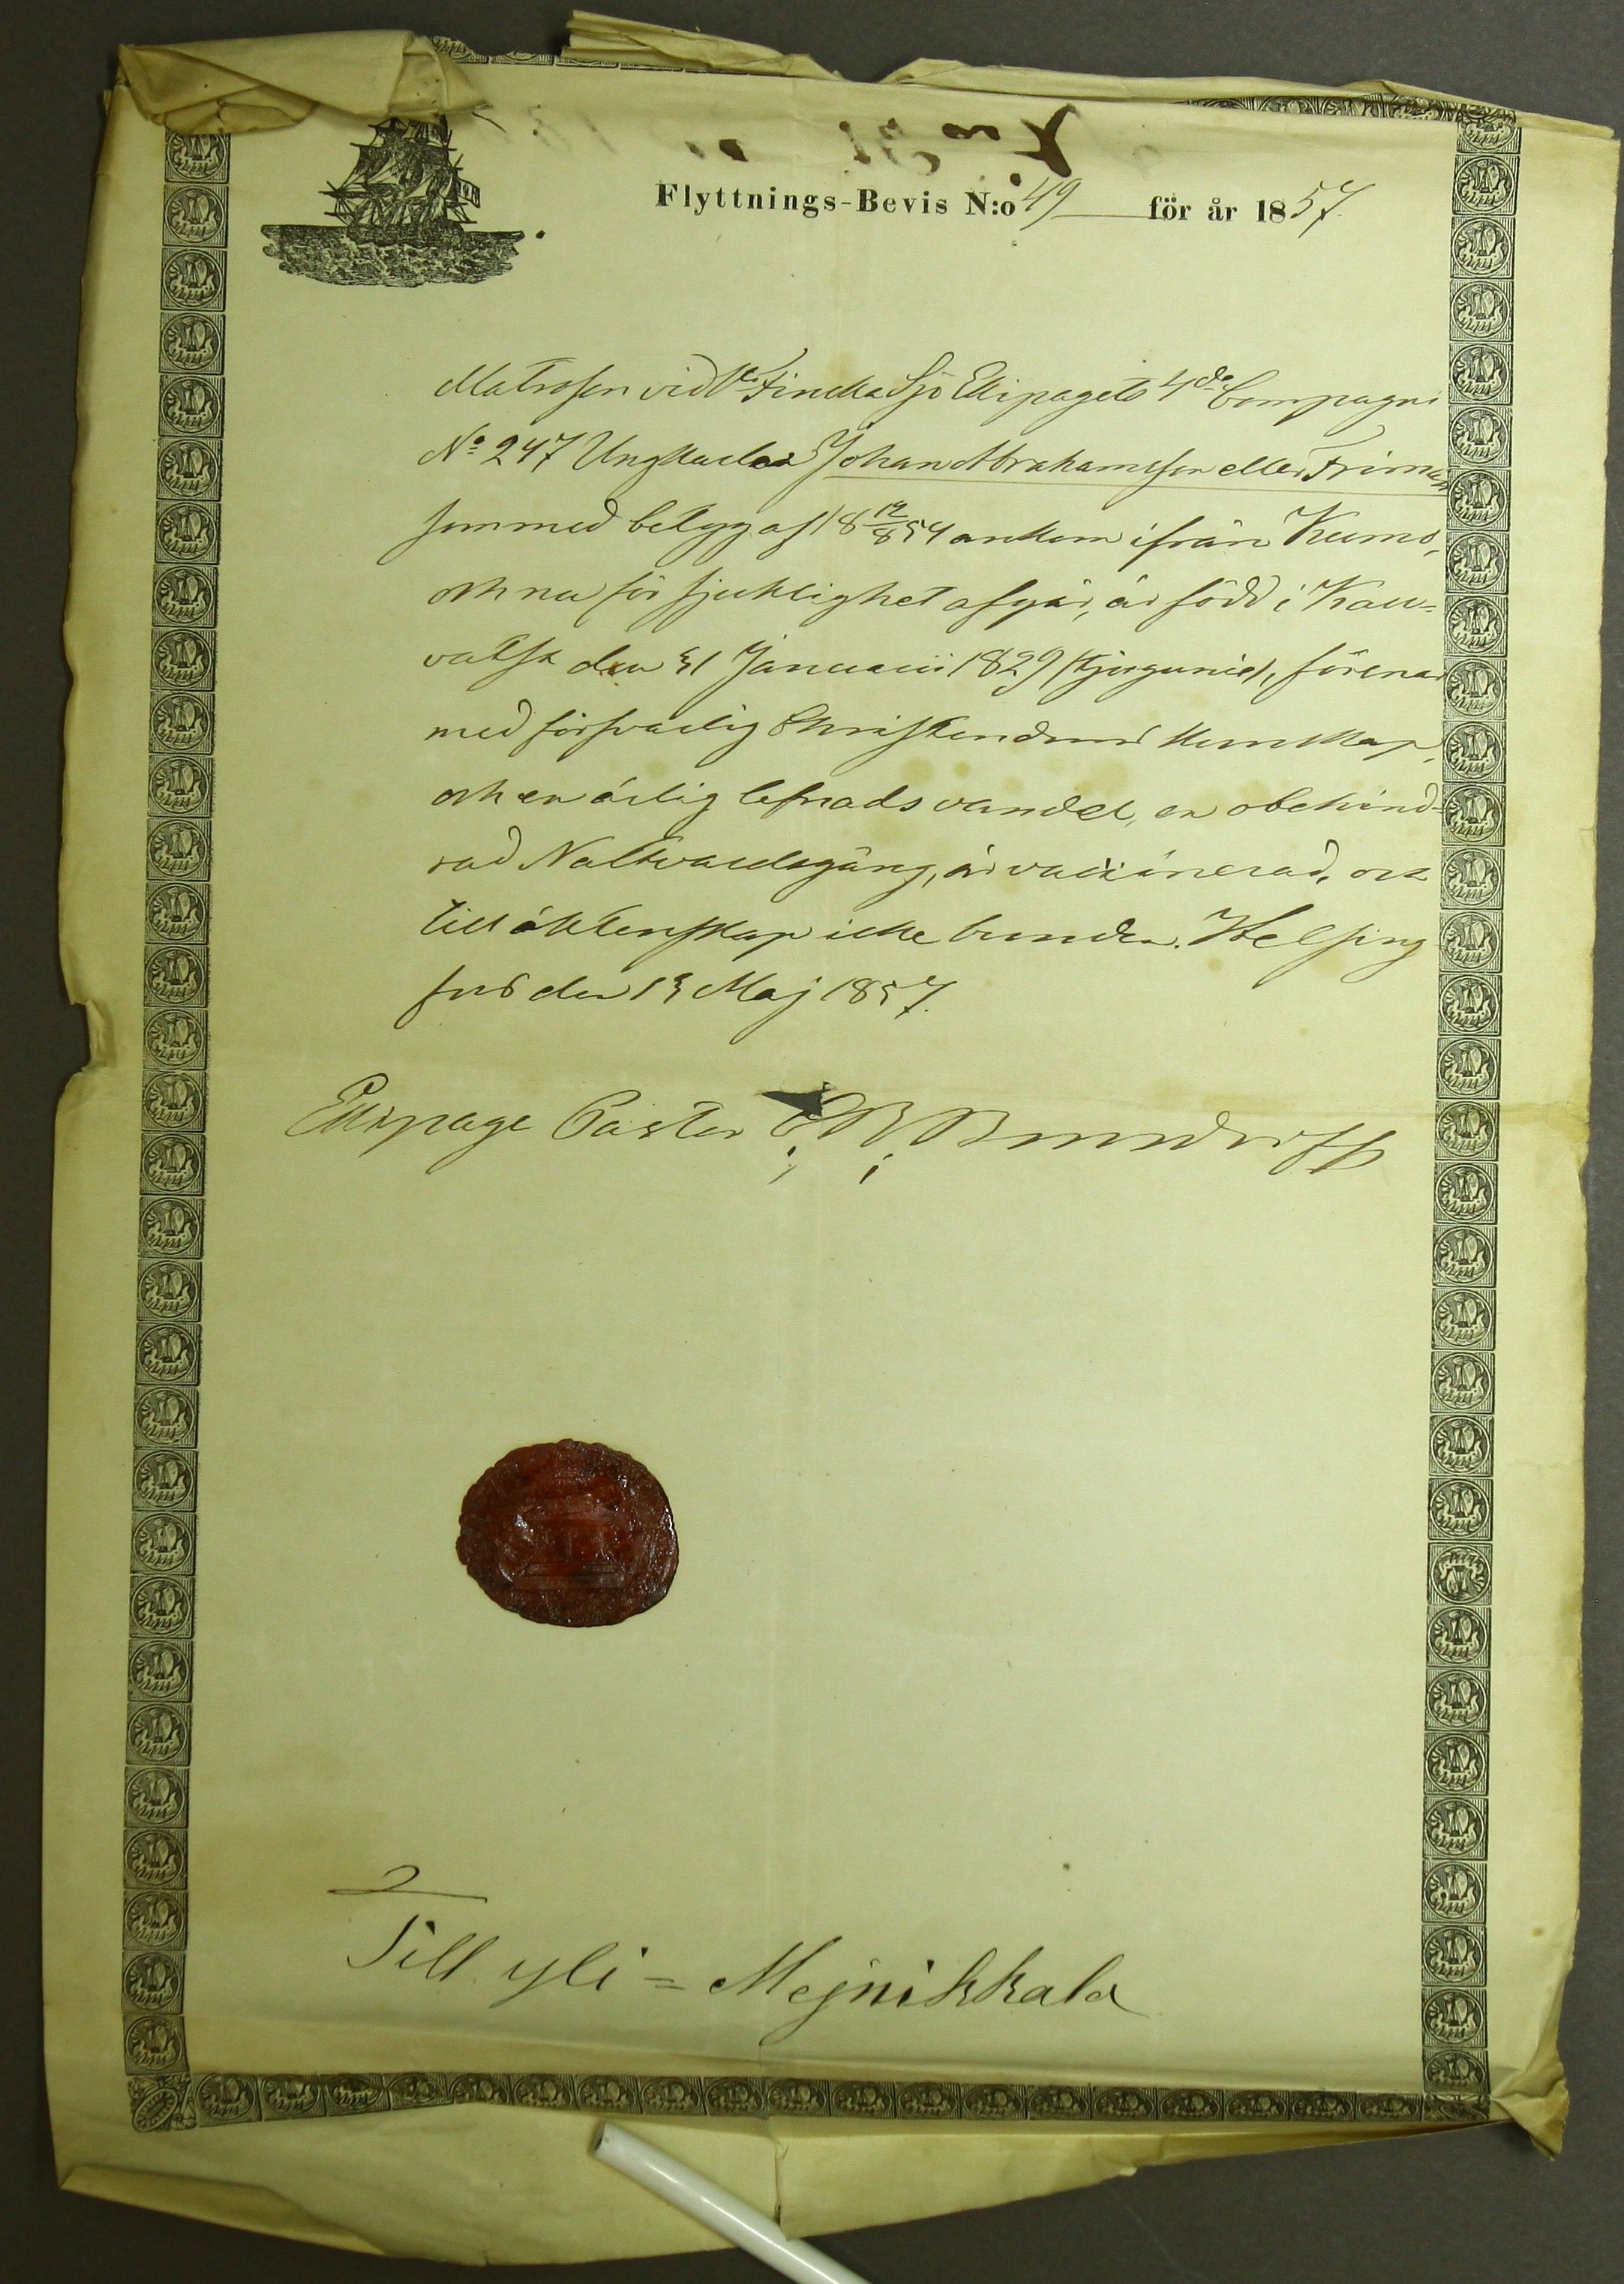 Flyttnings-Bevis N:o 49 för år 1857.
Matrosen vid 1sta Finska Sjö Ekipagets 4de Compagni
No 247 Ungkarlen Johan Abrahamsson eller Friman
som med betyg af 18 12/8 54 ankom ifrån Kumo,
och nu för sjuklighet afgår, är född i Kau-
vatsa den 31 Januarii 1829 (tjugunio), förenar
med försvarlig Christendoms kunskap,
och en ärlig lefnads vandel, en obehind-
rad Nattvardsgång, är vaccinerad, och
till äktenskap icke bunden. Helsing
fors den 13 Maj 1857.
Ekipage Pastor
Till yli = Mejnikkala